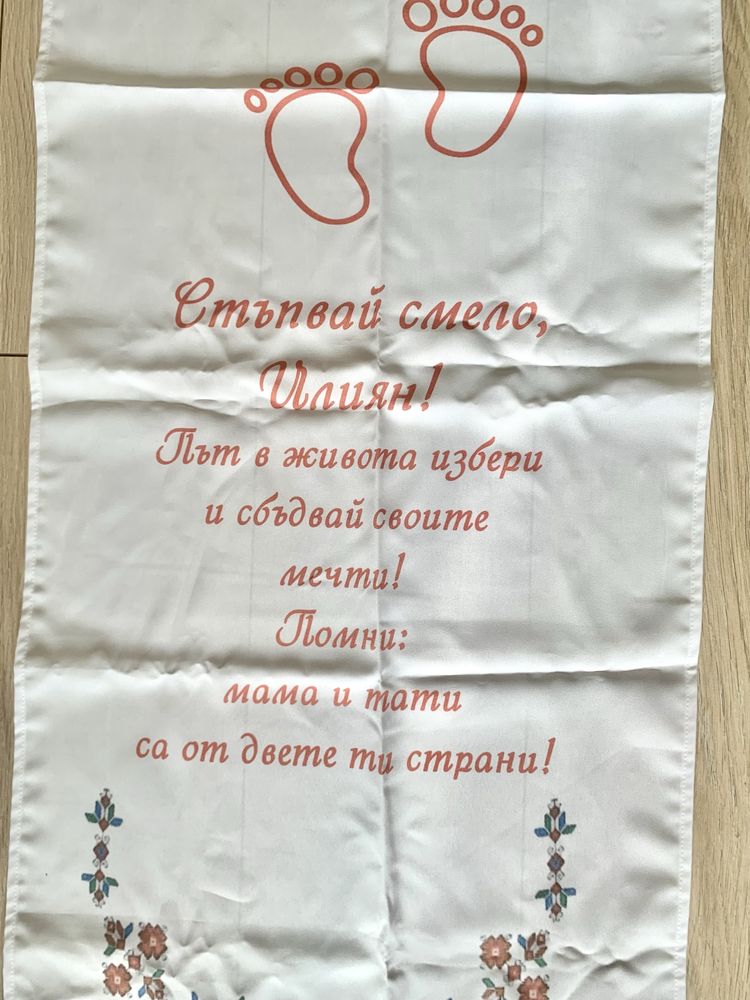 Стъпвай смело,
Илиян!
Път в живота избери
и сбъдвай своите
мечти!
Помни:
мама и тати
са от двете ти страни!